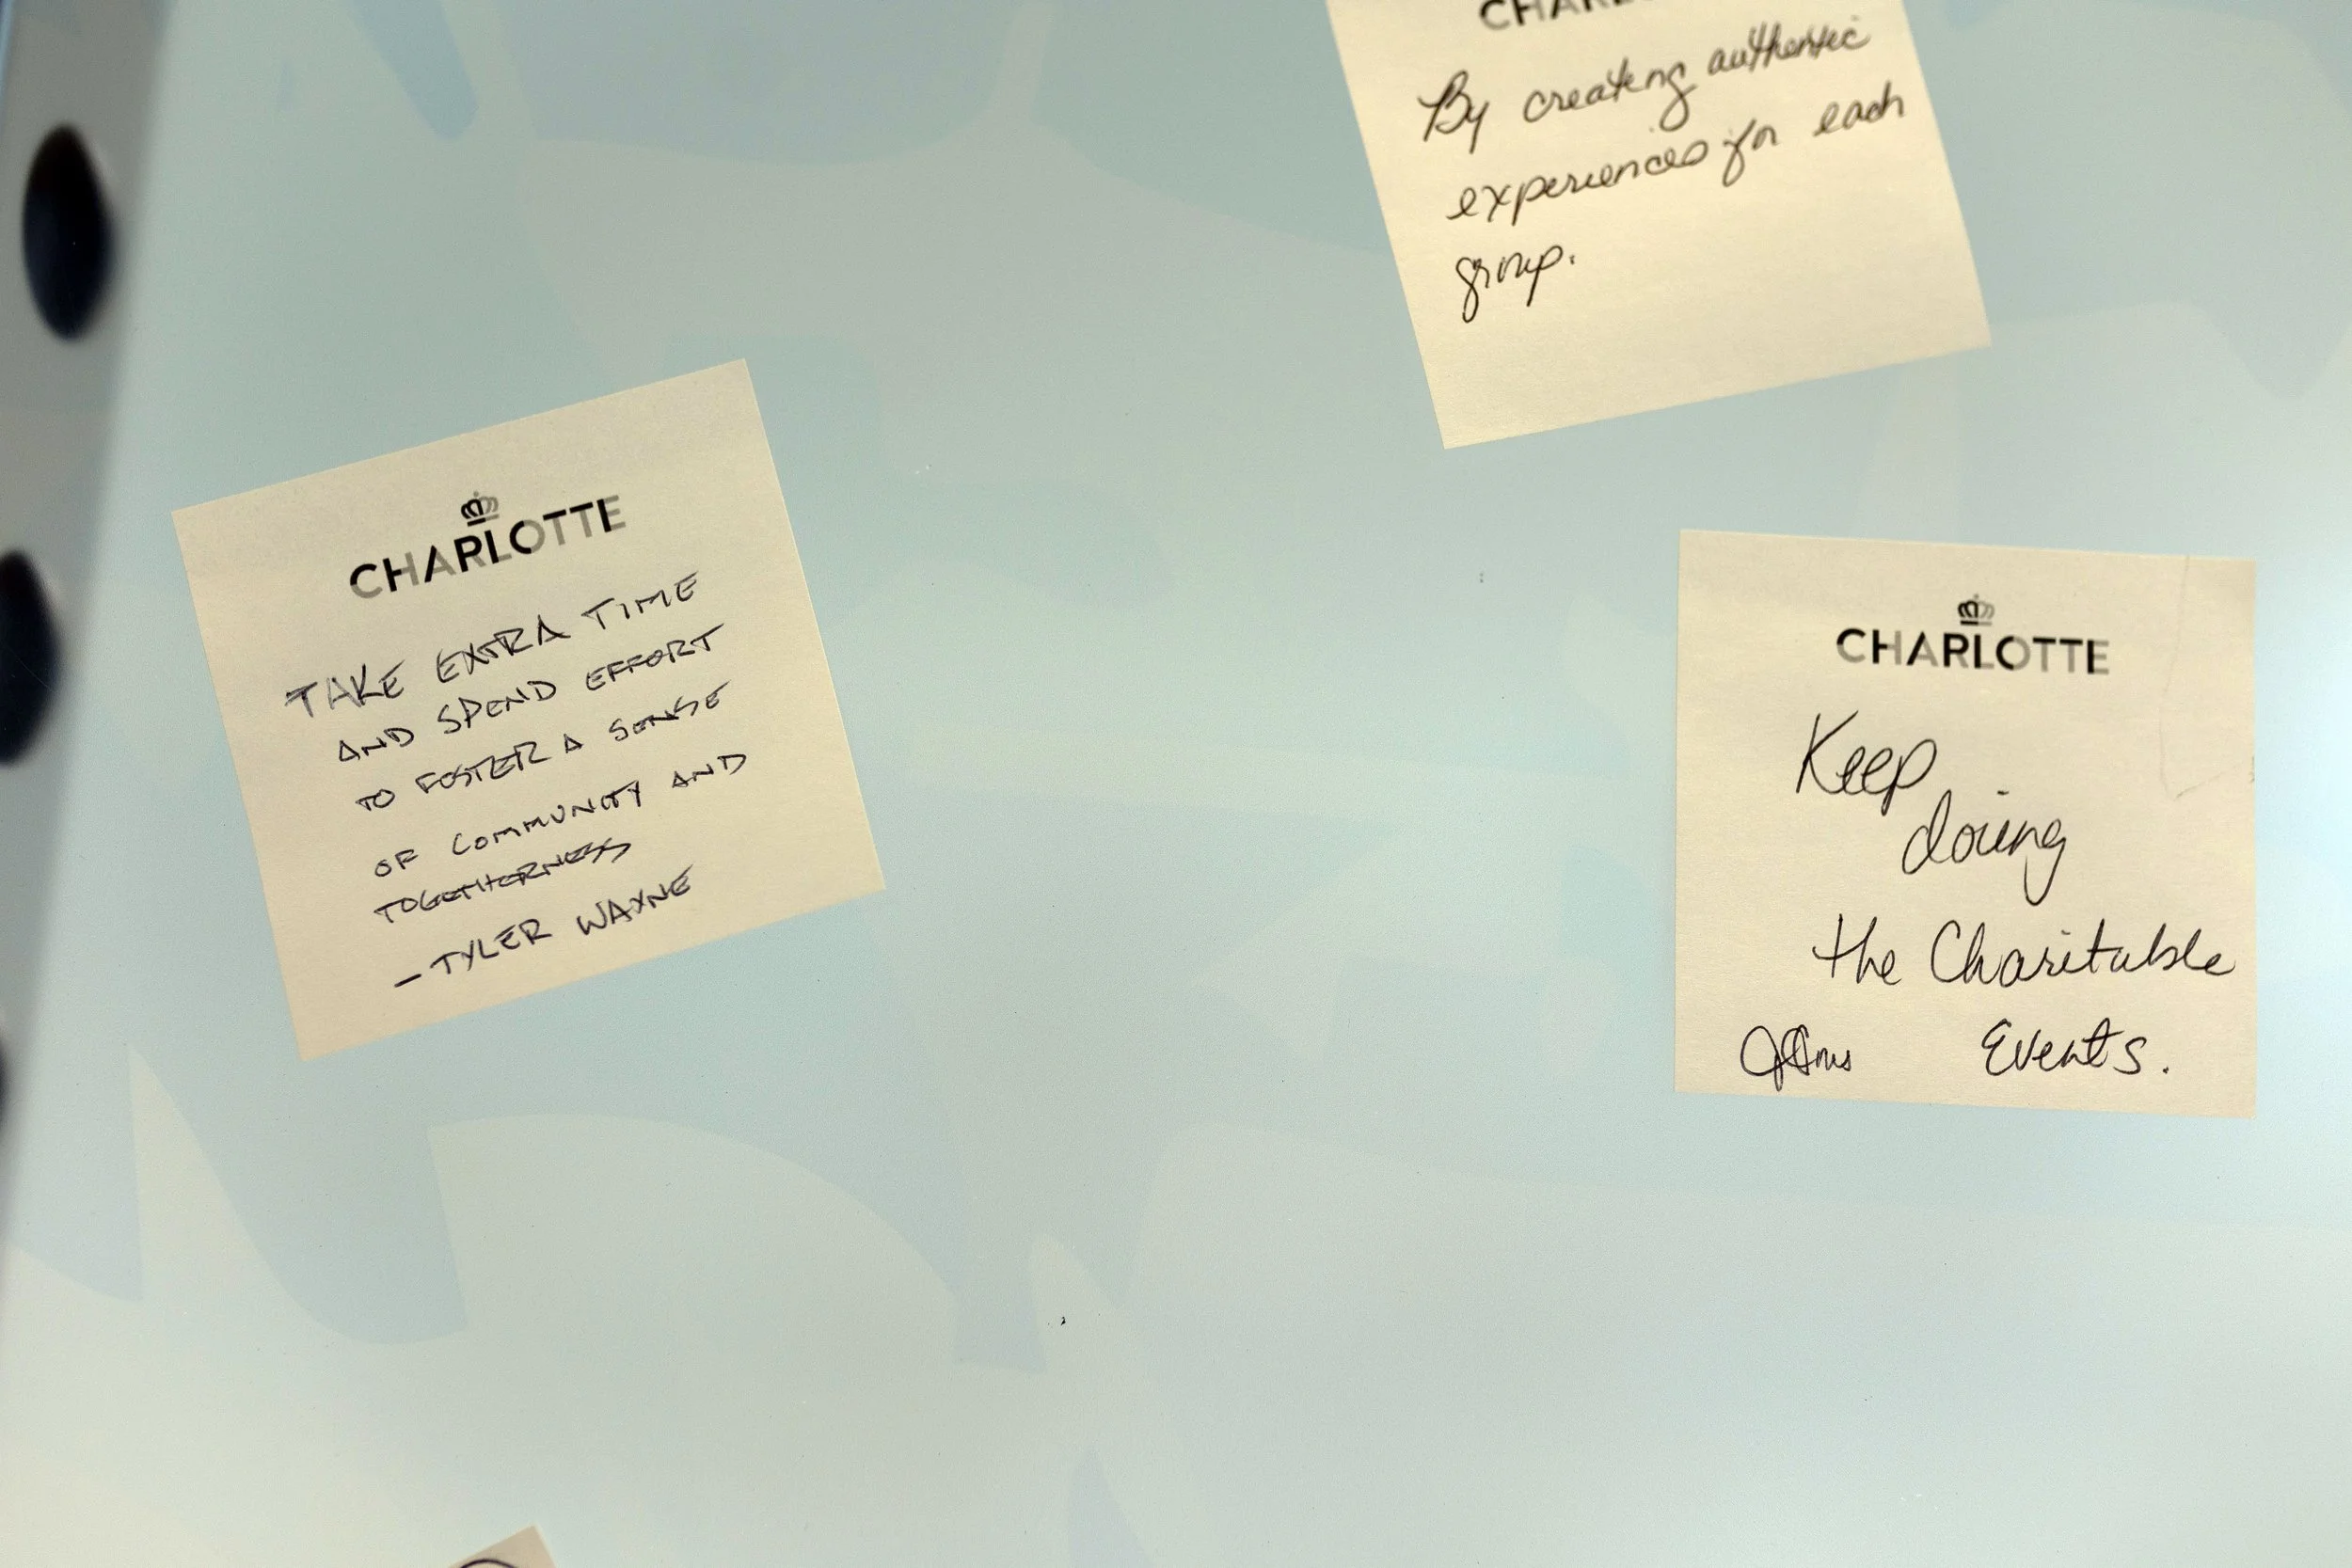 By creating authentic
experiences for each
group.
CHARLOTTE
TAKE EXTRA TIME
AND SPEND EFFORT
TO FOSTER A SENSE
OF COMMUNITY AND
TOGETHERNESS
- TYLER WAYNE
CHARLOTTE
Keep
doing
the Charitable
Events.